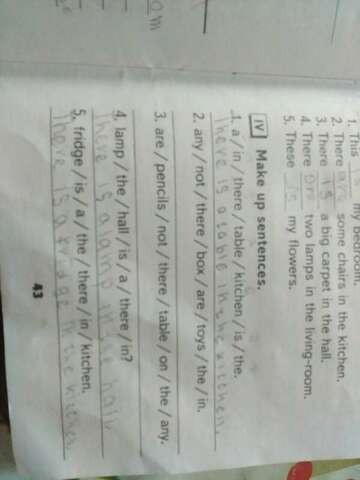 1. This is my bedroom.
2. There are some chairs in the kitchen.
3. There is a big carpet in the hall.
4. There are two lamps in the living-room.
5. These is my flowers.
IV Make up sentences.
1. a / in / there / table / kitchen / is / the.
There is a table in the kitchen.
2. any / not / there / box / are / toys / the / in.
3. are / pencils / not / there / table / on / the / any.
4. lamp / the / hall / is / a / there / in?
There is a lamp in the hall
5. fridge / is / a / the / there / in / kitchen.
There is a fridge in the kitchen
43